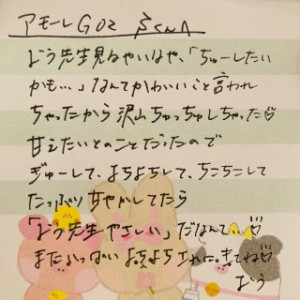 アモーレ G02 ふくん
よう先生見るやいなや、「ちゅーしたい
かも…」なんてかわいいこと言われ
ちゃったから沢山ちゅっちゅしちゃった♡
甘えたいとのことだったので
ぎゅーして、よちよちして、ちこちこして
たっぷり甘やかしてたら
「よう先生やさしい」だなんて…♡
またいっぱい よちよちされに、きてね♡
よう